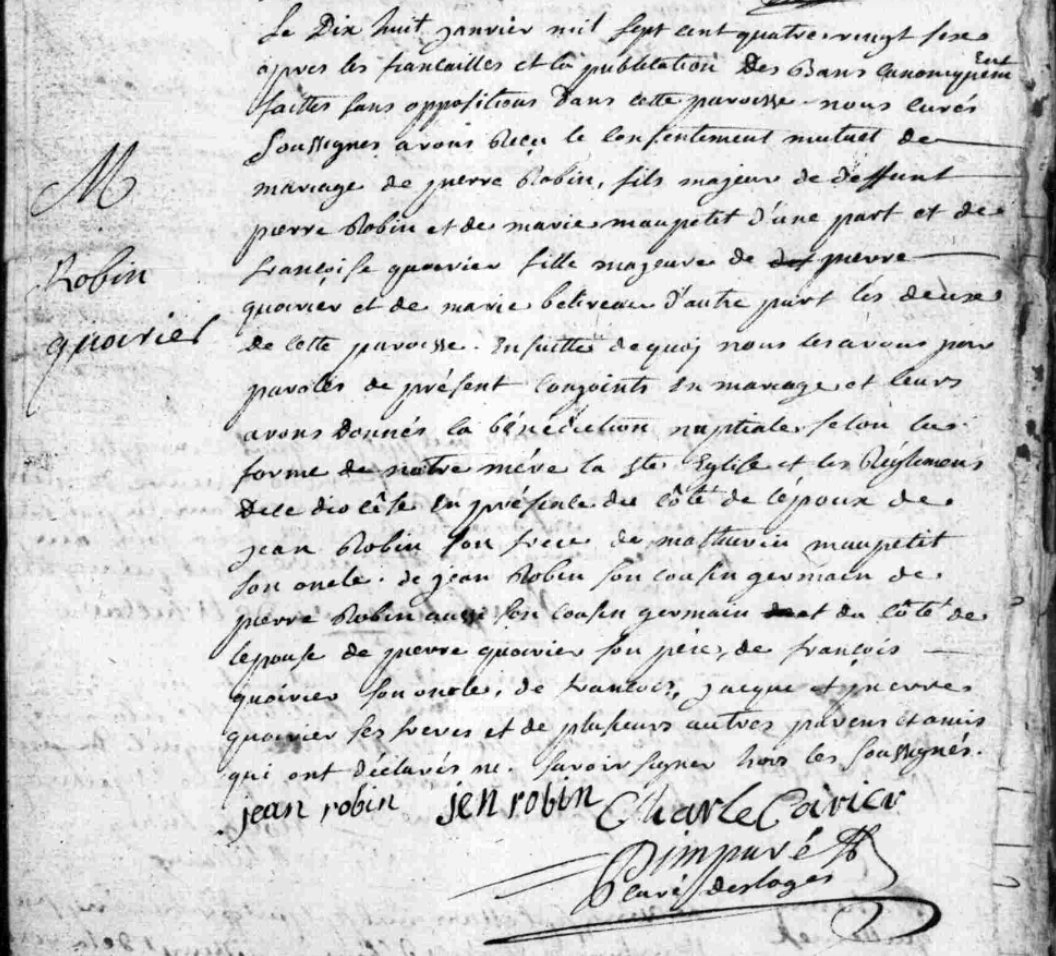 Le Dix huit janvier mil sept cent quatre vingt six
apres les fiancailles et la publication Des Bans Canoniquement
faittes sans oppositions Dans cette paroisse nous curés
Soussignes avons Reçu le consentement mutuel de
M
mariage de pierre Robin, fils majeur de deffunt
pierre Robin et de marie maupetit d'une part et de
Robin
françoise quoirier fille majeure de pierre
quoirier et de marie beliveau d'autre part les deux
quoirier
de cette paroisse. Ensuitte de quoj nous les avons par
paroles de présent conjoints En mariage et leurs
avons Donnés la bénédiction nuptiale selon la
forme de notre mére la ste Eglise et les Réglemens
De ce diocése En présence du côté de lépoux de
jean Robin son frere de mathurin maupetit
son oncle. de jean Robin son cousin germain de
pierre Robin aussi son cousin germain et du côté de
lepouse de pierre quoirier son pére, de françois
quoirier son oncle, de francois, jacque et pierre
quoirier ses freres et de plusieurs autres parens et amis
qui ont déclarés ne savoir signer hors les soussignés.
jean robin jen robin Charle Coirier
curé desloges